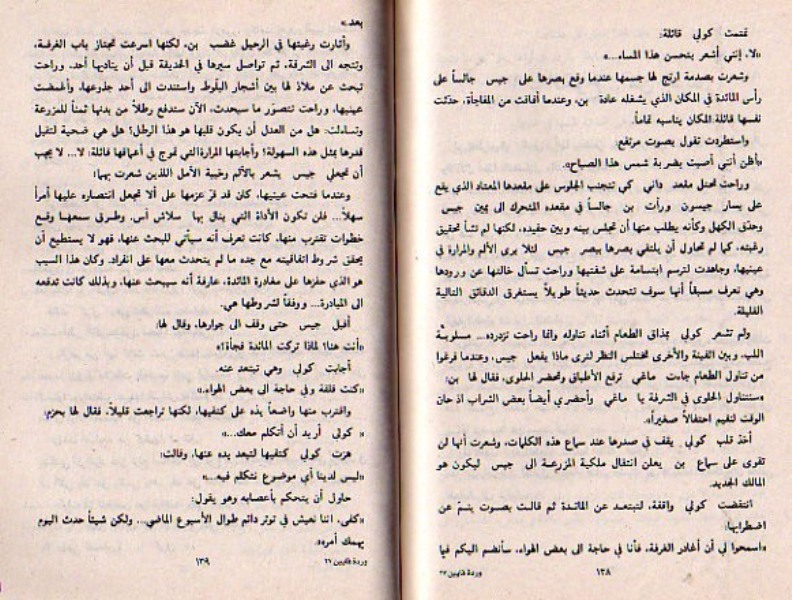 تمتمت كولي قائلة:
«لا، إنني أشعر بتحسن هذا المساء...»
وشعرت بصدمة ارتج لها جسمها عندما وقع بصرها على جيس جالساً على
رأس المائدة في المكان الذي يشغله عادة بن، وعندما أفاقت من المفاجأة، حدثت
نفسها قائلة المكان يناسبه تماماً.
واستطردت تقول بصوت مرتفع:
«أظن أنني أصبت بضربة شمس هذا الصباح».
وراحت تحتل مقعد داني كي تتجنب الجلوس على مقعدها المعتاد الذي يقع
على يسار جيسون ورأت بن جالساً في مقعده المتحرك الى يمين جيس
وحدق الكهل وكأنه يطلب منها أن تجلس بينه وبين حفيده، لكنها لم تشأ تحقيق
رغبته، كما لم تحاول أن يلتقي بصرها ببصر جيس لئلا يرى الألم والمرارة في
عينيها، وجاهدت لترسم ابتسامة على شفتيها وراحت تسأل خالتها عن ورودها
وهي تعرف مسبقاً أنها سوف تتحدث حديثاً طويلاً يستغرق الدقائق التالية
القليلة.
ولم تشعر كولي بمذاق الطعام أثناء تناوله وانما راحت تزدرده... مسلوبة
اللب، وبين الفينة والأخرى تختلس النظر لترى ماذا يفعل جيس، وعندما فرغوا
من تناول الطعام جاءت ماغي ترفع الأطباق وتحضر الحلوى، فقال لها بن:
«سنتناول الحلوى في الشرفة يا ماغي وأحضري أيضاً بعض الشراب اذ حان
الوقت لنقيم احتفالاً صغيراً».
أخذ قلب كولي يقف في صدرها عند سماع هذه الكلمات، وشعرت أنها لن
تقوى على سماع بن يعلن انتقال ملكية المزرعة الى جيس ليكون هو
المالك الجديد.
انتفضت كولي واقفة، لتبتعد عن المائدة ثم قالت بصوت ينم عن
اضطرابها:
«اسمحوا لي أن أغادر الغرفة، فأنا في حاجة الى بعض الهواء، سأنضم اليكم فيما
١٣٨
وردة قايين ٢٧
بعد»
وأثارت رغبتها في الرحيل غضب بن، لكنها اسرعت تجتاز باب الغرفة،
وتتجه الى الشرفة، ثم تواصل سيرها في الحديقة قبل أن يناديها أحد، وراحت
تبحث عن ملاذ لها بين أشجار البلوط، واستندت الى أحد جذوعها، وأغمضت
عينيها، وراحت تتصور ما سيحدث، الآن ستدفع رطلاً من بدنها ثمناً للمزرعة
وتساءلت: هل من العدل أن يكون قلبها هو هذا الرطل؟ هل هي ضحية لتقبل
قدرها بمثل هذه السهولة؟ وأجابتها المرارة التي تموج في أعماقها قائلة: لا... لا يجب
أن تجعلي جيس يشعر بالألم وخيبة الأمل اللذين شعرت بهما:
وعندما فتحت عينيها، كان قد قر عزمها على ألا تجعل انتصاره عليها أمراً
سهلاً... فلن تكون الأداة التي ينال بها سلاش أس، وطرق سمعها وقع
خطوات تقترب منها، كانت تعرف أنه سيأتي للبحث عنها، فهو لا يستطيع أن
يحقق شروط اتفاقيته مع جده ما لم يتحدث معها على انفراد. وكان هذا السبب
هو الذي حفزها على مغادرة المائدة، عارفة أنه سيبحث عنها، وبذلك كانت تدفعه
الى المبادرة... ووفقاً لشروطها هي.
أقبل جيس حتى وقف الى جوارها، وقال لها:
«أنت هنا! لماذا تركت المائدة فجأة؟»
أجابت كولي وهي تبتعد عنه.
«كنت قلقة وفي حاجة الى بعض الهواء.»
واقترب منها واضعاً يده على كتفيها، لكنها تراجعت قليلاً، فقال لها بحزم:
« كولي أريد أن أتكلم معك...»
هزت كولي كتفيها لتبعد يده عنها، وقالت:
«ليس لدينا أي موضوع نتكلم فيه...»
حاول أن يتحكم بأعصابه وهو يقول:
«كلي، اننا نعيش في توتر دائم طوال الأسبوع الماضي... ولكن شيئاً حدث اليوم
يهمك أمره».
١٣٩
وردة قايين ٢٧